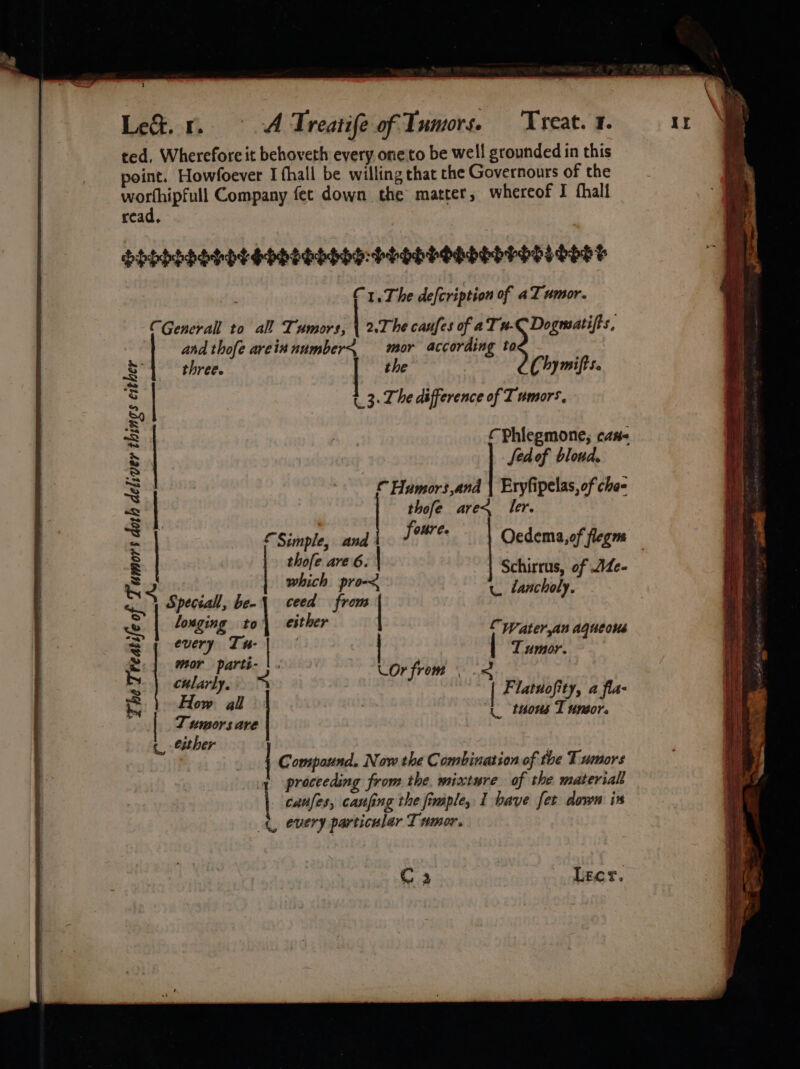 Lect. 1. A Treatiſe of Tumors. Treat. 1. 11
ted. Wherefore it behoveth every one to be well grounded in this
point. Howſoever I ſhall be willing that the Governours of the
worſhipfull Company ſet down the matter, whereof I ſhall
read.
The Treatiſe of Tumors doth deliver things either
Generall to all Tumors,
and thoſe are in number
three.
1. The deſcription of a Tumor.
2. The cauſes of a Tu-
mor according to
the
Dogmatiſts,
Chymiſts.
3. The difference of Tumors.
Speciall, be-
longing to
every Tu-
mor parti-
cularly.
How all
Tumors are
either
Simple, and
thoſe are 6.
which pro-
ceed from
either
Humors, and
thoſe are
foure.
Phlegmone, cau-
ſed of bloud.
Eryſipelas, of cho-
ler.
Oedema, of flegm
Schirrus, of Me-
lancholy.
Or from
Water, an aqueous
Tumor.
Flatuoſity, a fla-
tuous Tumor.
Compound. Now the Combination of the Tumors
proceeding from the mixture of the materiall
cauſes, cauſing the ſimple, I have ſet down in
every particular Tumor.
C 2 LECT.